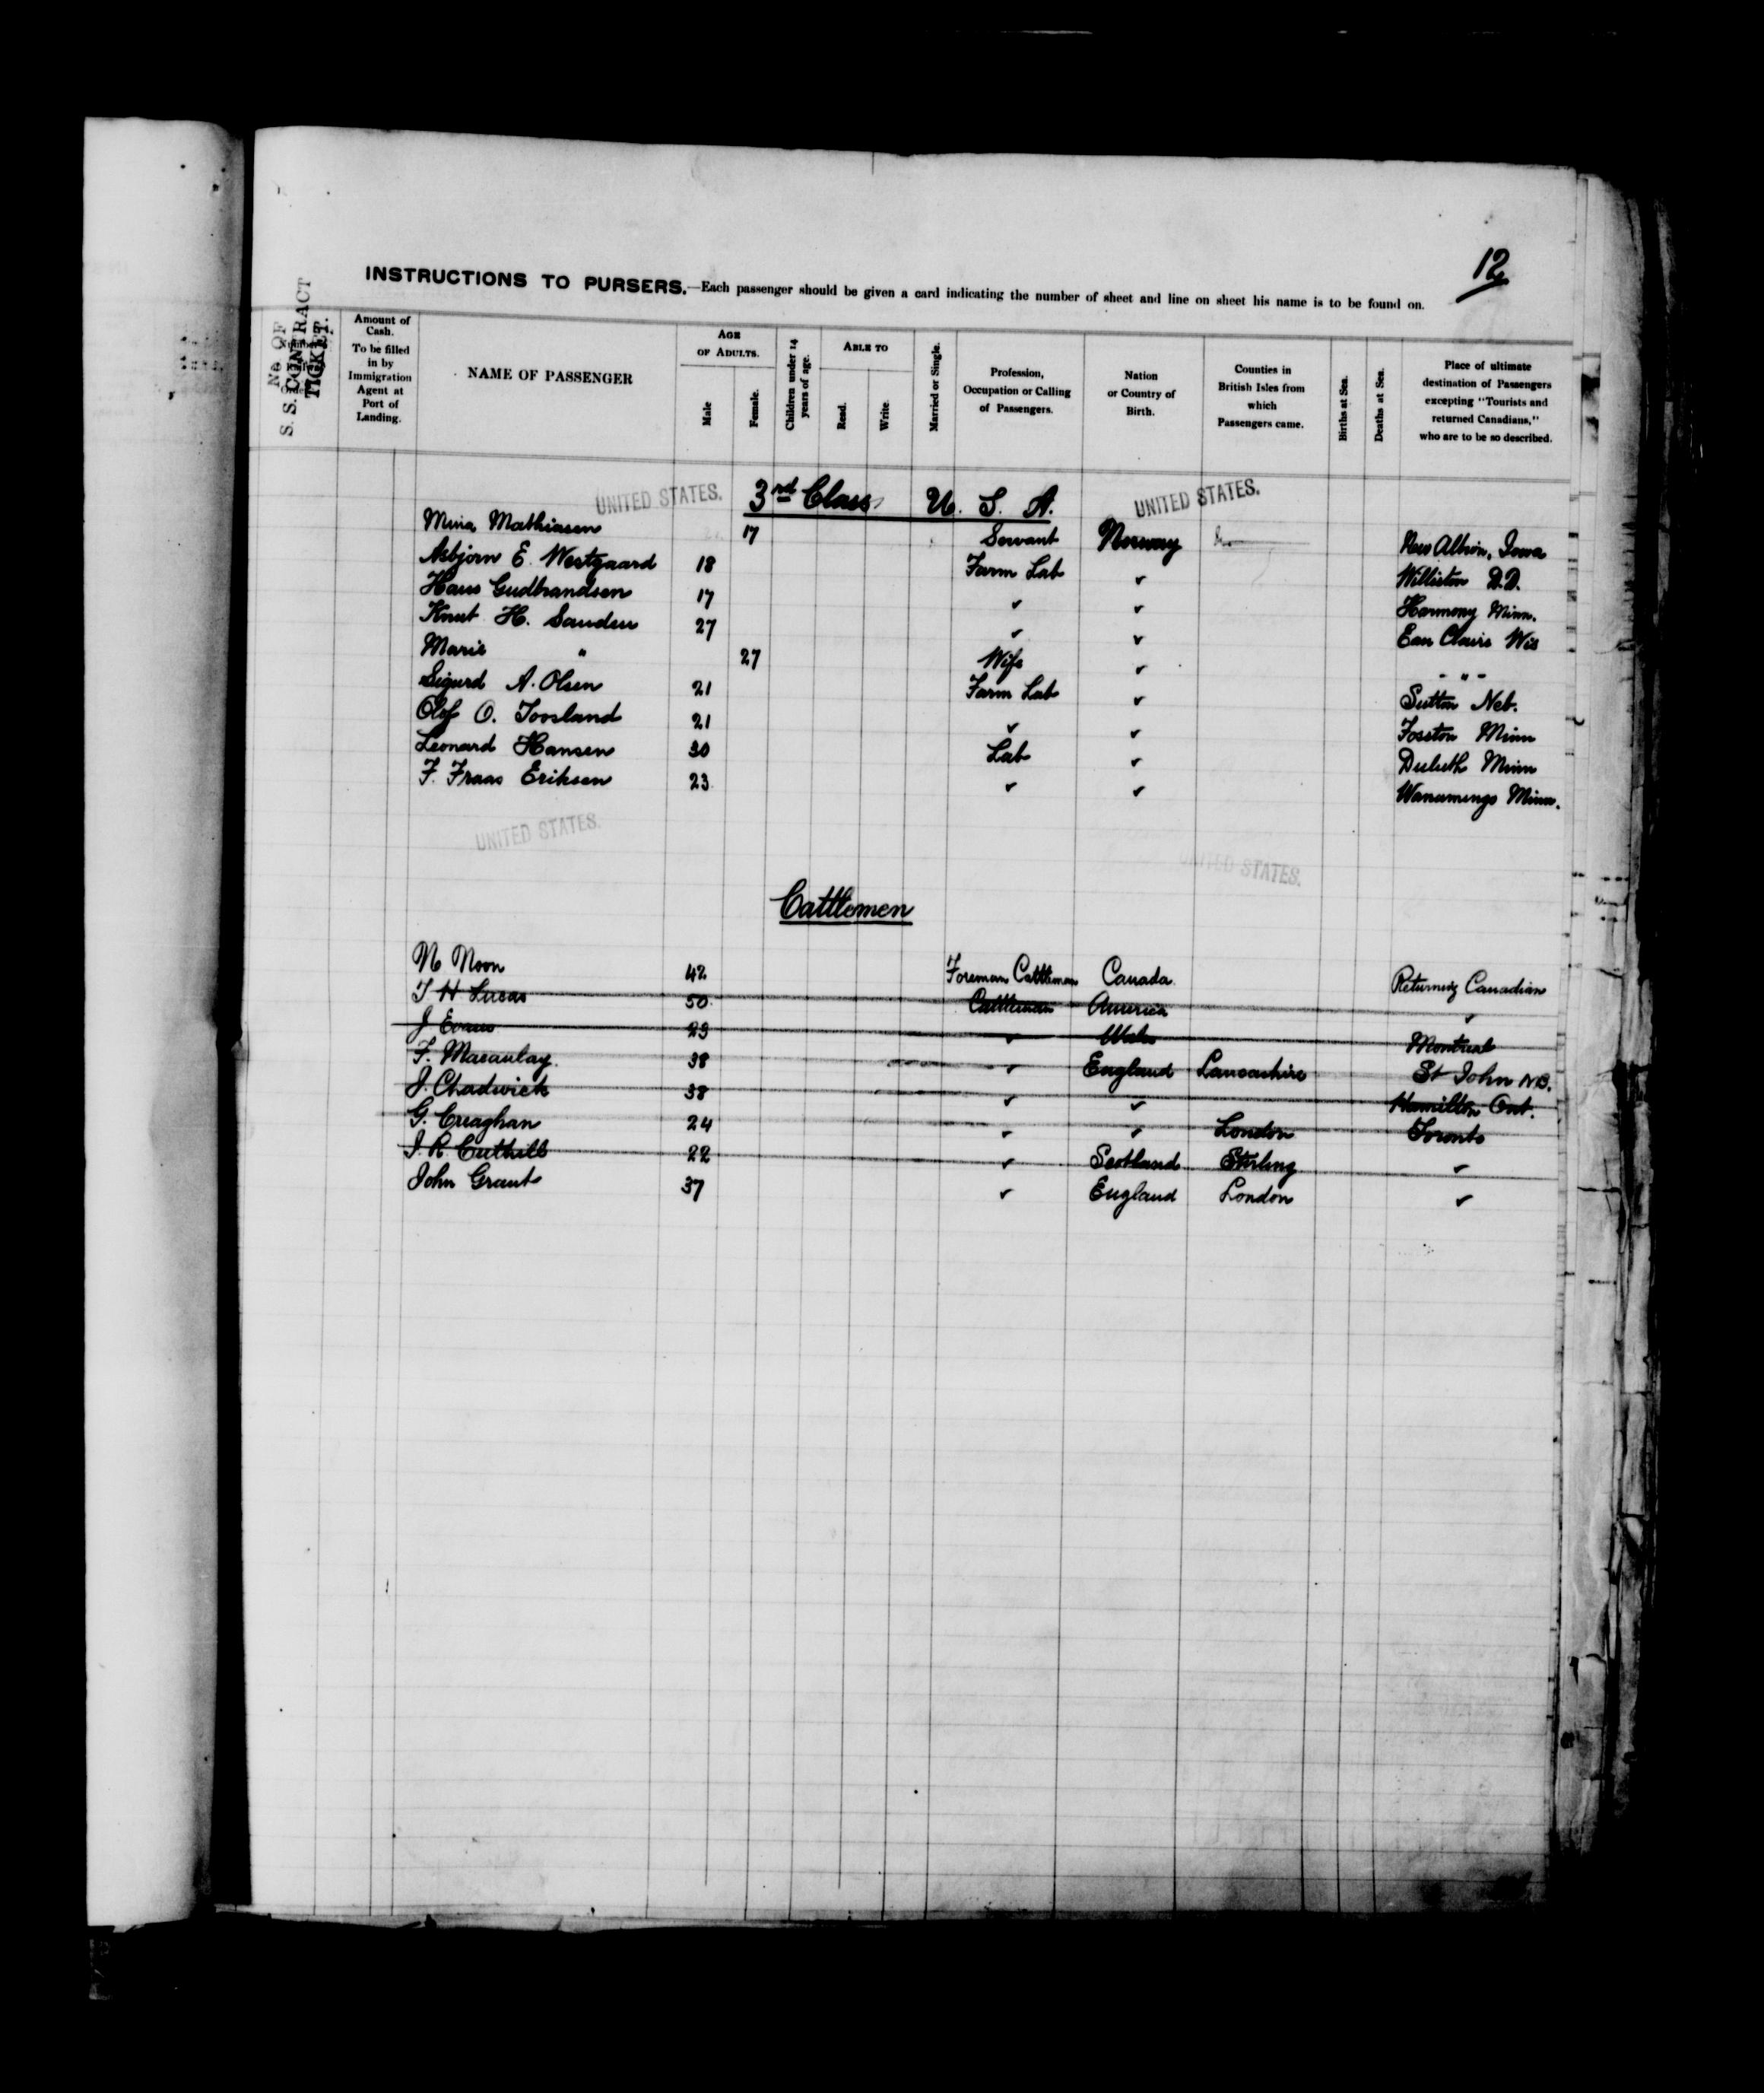 12
INSTRUCTIONS TO PURSERS.—Each passenger should be given a card indicating the number of sheet and line on sheet his name is to be found on.
No. OF S. S. CONTRACT TICKET.
Amount of Cash. To be filled in by Immigration Agent at Port of Landing.
NAME OF PASSENGER
AGE OF ADULTS.
Male
Female.
Children under 14 years of age.
ABLE TO
Read.
Write.
Married or Single.
Profession, Occupation or Calling of Passengers.
Nation or Country of Birth.
Counties in British Isles from which Passengers came.
Births at Sea.
Deaths at Sea.
Place of ultimate destination of Passengers excepting "Tourists and returned Canadians," who are to be so described.
UNITED STATES. 3rd Class U. S. A. UNITED STATES.
Mina Mathiasen 17 Servant Norway New Albion, Iowa
Asbjorn E. Westgaard 18 Farm Lab ✓ Williston D.D.
Hans Gudbrandsen 17 ✓ ✓ Harmony Minn.
Knut H. Sanden 27 ✓ ✓ Eau Claire Wis
Marie " 27 Wife ✓ - " -
Sigurd A. Olsen 21 Farm Lab ✓ Sutton Neb.
Olof O. Toosland 21 ✓ ✓ Fosston Minn
Leonard Hansen 30 Lab ✓ Duluth Minn
F. Fraas Eriksen 23 ✓ ✓ Wanamingo Minn.
UNITED STATES. UNITED STATES.
Cattlemen
N Noon 42 Foreman Cattleman Canada Returning Canadian
T H Lucas 50 Cattleman America ✓
J Evans 23 ✓ Wales Montreal
F. Macaulay 38 ✓ England Lancashire St John N.B.
J. Chadwick 38 ✓ ✓ Hamilton Ont.
G. Creaghan 24 ✓ ✓ London Toronto
J. R. Cuthill 22 ✓ Scotland Stirling ✓
John Grant 37 ✓ England London ✓